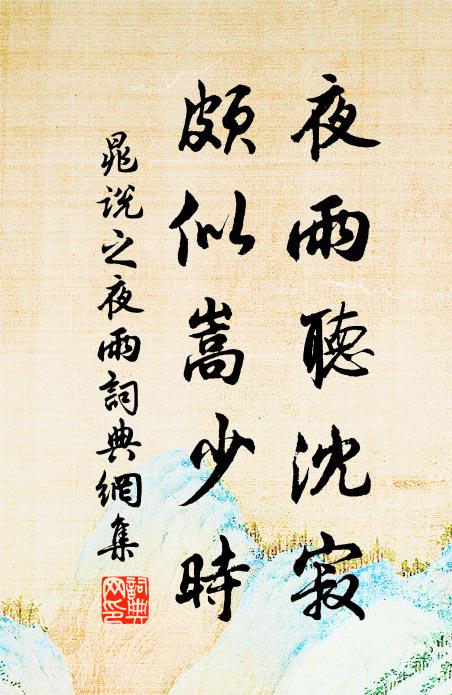 夜雨聽沈寂
頗似嵩少時
晁說之夜雨詞典網集
詞典网印